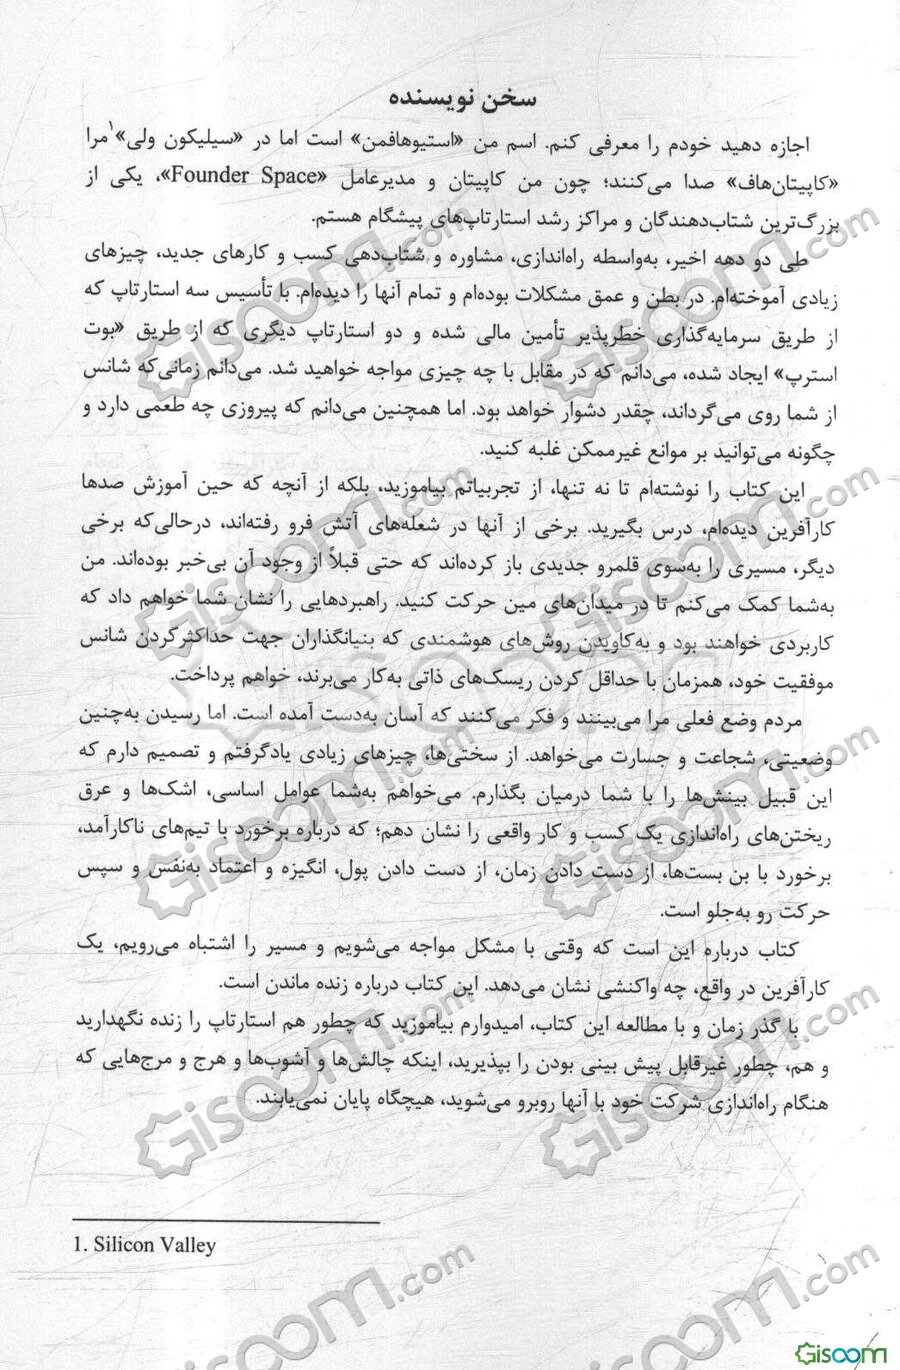 سخن نویسنده
اجازه دهید خودم را معرفی کنم. اسم من «استیوهافمن» است اما در «سیلیکون ولی»¹مرا
«کاپیتان‌هاف» صدا می‌کنند؛ چون من کاپیتان و مدیرعامل «Founder Space»، یکی از
بزرگ‌ترین شتاب‌دهندگان و مراکز رشد استارتاپ‌های پیشگام هستم.
طی دو دهه اخیر، به‌واسطه راه‌اندازی، مشاوره و شتاب‌دهی کسب و کارهای جدید، چیزهای
زیادی آموخته‌ام. در بطن و عمق مشکلات بوده‌ام و تمام آنها را دیده‌ام. با تأسیس سه استارتاپ که
از طریق سرمایه‌گذاری خطرپذیر تأمین مالی شده و دو استارتاپ دیگری که از طریق «بوت
استرپ» ایجاد شده، می‌دانم که در مقابل با چه چیزی مواجه خواهید شد. می‌دانم زمانی‌که شانس
از شما روی می‌گرداند، چقدر دشوار خواهد بود. اما همچنین می‌دانم که پیروزی چه طعمی دارد و
چگونه می‌توانید بر موانع غیرممکن غلبه کنید.
این کتاب را نوشته‌ام تا نه تنها، از تجربیاتم بیاموزید، بلکه از آنچه که حین آموزش صدها
کارآفرین دیده‌ام، درس بگیرید. برخی از آنها در شعله‌های آتش فرو رفته‌اند، درحالی‌که برخی
دیگر، مسیری را به‌سوی قلمرو جدیدی باز کرده‌اند که حتی قبلاً از وجود آن بی‌خبر بوده‌اند. من
به‌شما کمک می‌کنم تا در میدان‌های مین حرکت کنید. راهبردهایی را نشان شما خواهم داد که
کاربردی خواهند بود و به‌کاویدن روش‌های هوشمندی که بنیانگذاران جهت حداکثرکردن شانس
موفقیت خود، همزمان با حداقل کردن ریسک‌های ذاتی به‌کار می‌برند، خواهم پرداخت.
مردم وضع فعلی مرا می‌بینند و فکر می‌کنند که آسان به‌دست آمده است. اما رسیدن به‌چنین
وضعیتی، شجاعت و جسارت می‌خواهد. از سختی‌ها، چیزهای زیادی یادگرفتم و تصمیم دارم که
این قبیل بینش‌ها را با شما درمیان بگذارم. می‌خواهم به‌شما عوامل اساسی، اشک‌ها و عرق
ریختن‌های راه‌اندازی یک کسب و کار واقعی را نشان دهم؛ که درباره برخورد با تیم‌های ناکارآمد،
برخورد با بن بست‌ها، از دست دادن زمان، از دست دادن پول، انگیزه و اعتماد به‌نفس و سپس
حرکت رو به‌جلو است.
کتاب درباره این است که وقتی با مشکل مواجه می‌شویم و مسیر را اشتباه می‌رویم، یک
کارآفرین در واقع، چه واکنشی نشان می‌دهد. این کتاب درباره زنده ماندن است.
با گذر زمان و با مطالعه این کتاب، امیدوارم بیاموزید که چطور هم استارتاپ را زنده نگهدارید
و هم، چطور غیرقابل پیش بینی بودن را بپذیرید، اینکه چالش‌ها و آشوب‌ها و هرج و مرج‌هایی که
هنگام راه‌اندازی شرکت خود با آنها روبرو می‌شوید، هیچگاه پایان نمی‌یابند.
1. Silicon Valley
Gisoom.com
Gisoom